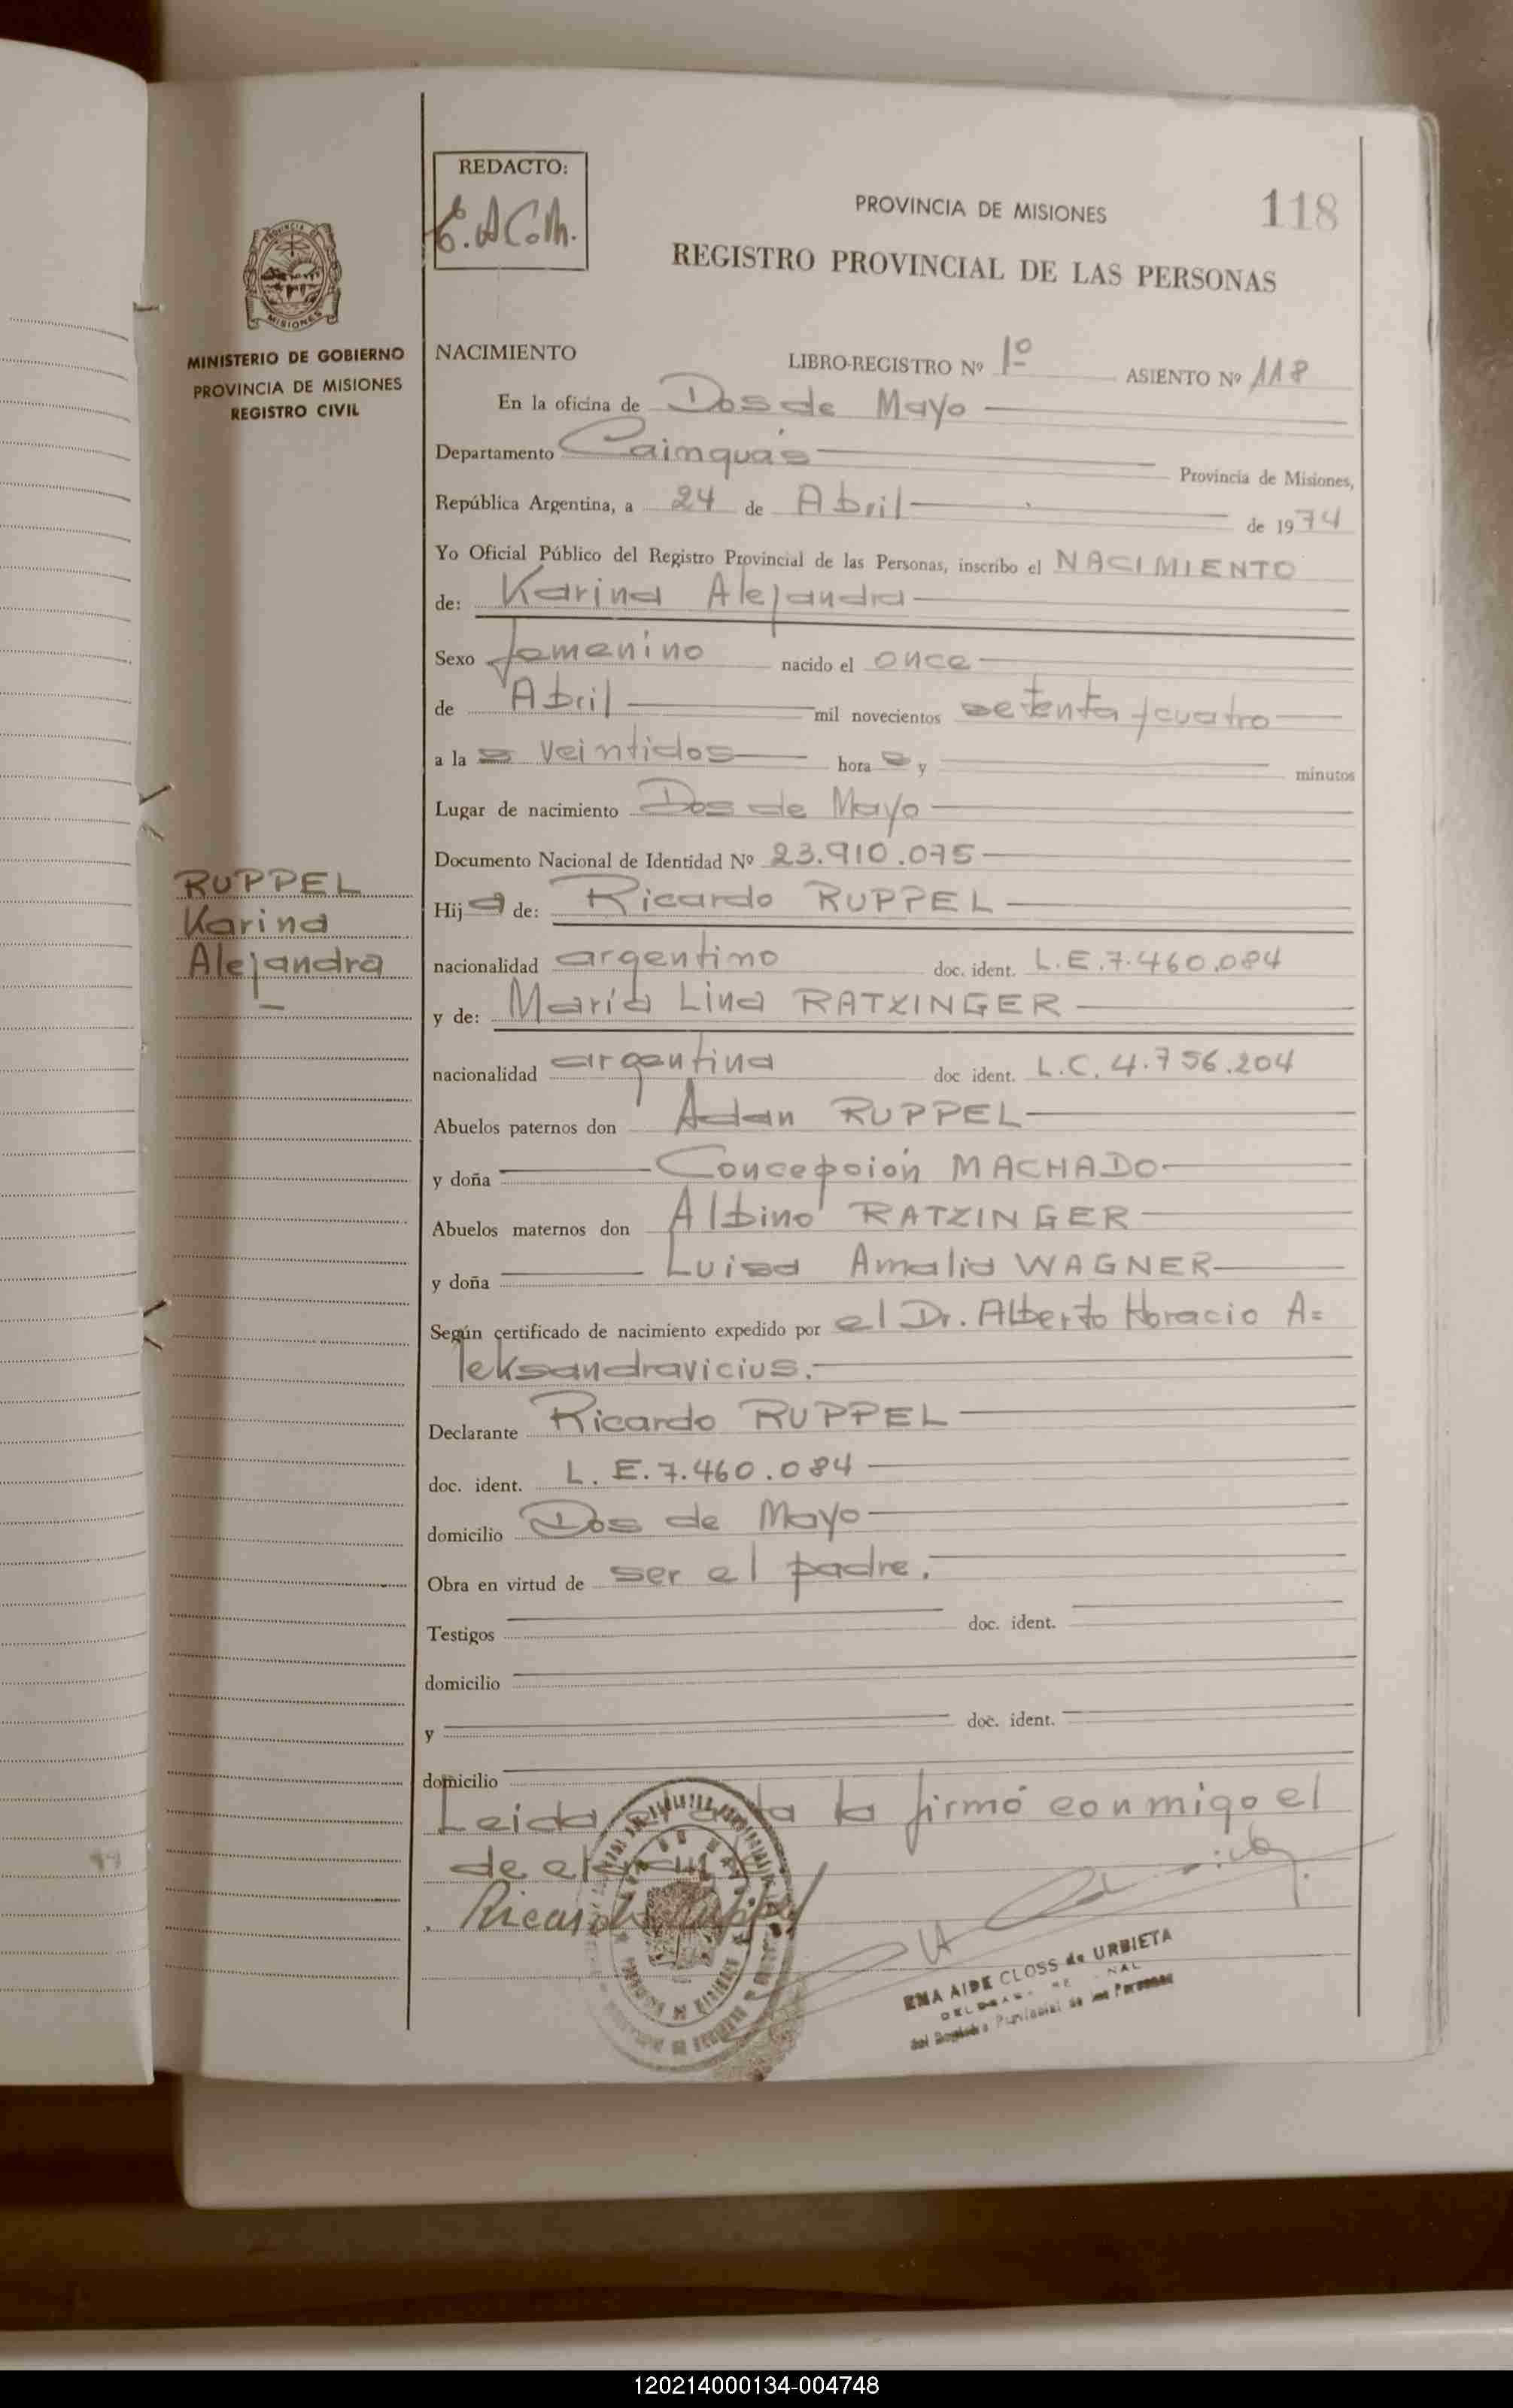 REDACTO:
E.A.C.M.
PROVINCIA DE MISIONES
118
REGISTRO PROVINCIAL DE LAS PERSONAS
MISIONES
MINISTERIO DE GOBIERNO
PROVINCIA DE MISIONES
REGISTRO CIVIL
NACIMIENTO LIBRO-REGISTRO Nº 1º ASIENTO Nº 118
En la oficina de Dos de Mayo
Departamento Cainguás Provincia de Misiones,
República Argentina, a 24 de Abril de 1974
Yo Oficial Público del Registro Provincial de las Personas, inscribo el NACIMIENTO
de: Karina Alejandra
Sexo femenino nacido el once
de Abril mil novecientos setenta y cuatro
a las veintidos horas y minutos
Lugar de nacimiento Dos de Mayo
Documento Nacional de Identidad Nº 23.910.075
RUPPEL
Karina
Alejandra
Hija de: Ricardo RUPPEL
nacionalidad argentino doc. ident. L.E.7.460.084
y de: María Lina RATZINGER
nacionalidad argentina doc ident. L.C.4.756.204
Abuelos paternos don Adan RUPPEL
y doña Concepción MACHADO
Abuelos maternos don Albino RATZINGER
y doña Luisa Amalia WAGNER
Según certificado de nacimiento expedido por el Dr. Alberto Horacio A=
leksandravicius.
Declarante Ricardo RUPPEL
doc. ident. L.E.7.460.084
domicilio Dos de Mayo
Obra en virtud de ser el padre.
Testigos doc. ident.
domicilio
y doc. ident.
domicilio
Leida el acta la firmó conmigo el
Ricardo Ruppel
EMA AIDE CLOSS de URBIETA
del Registro Provincial de las Personas
120214000134-004748